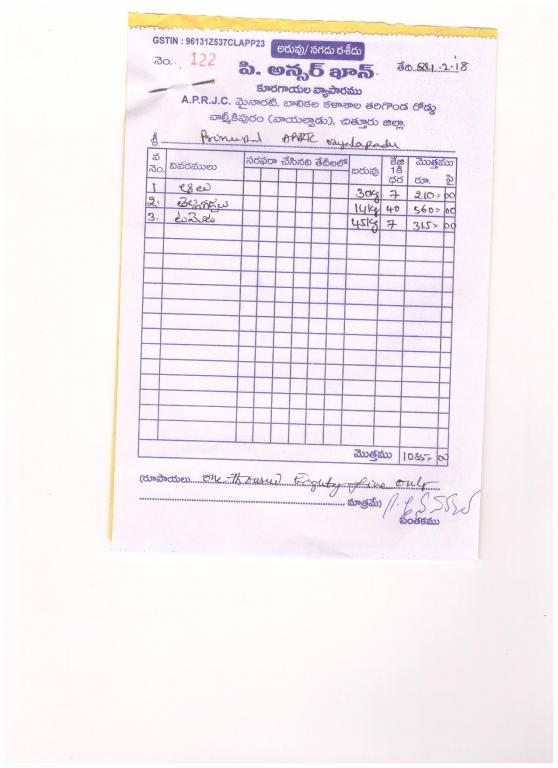 GSTIN : 96131Z537CLAPP23
అరువు/ నగదు రశీదు
నెం. 122
తేది 24.2.18
పి. అన్సర్ ఖాన్
కూరగాయల వ్యాపారము
A.P.R.J.C. మైనారటి, బాలికల కళాశాల తరిగొండ రోడ్డు
వాల్మీకిపురం (వాయల్పాడు), చిత్తూరు జిల్లా.
శ్రీ Principal APRJC Vayalapadu
వ నెం. వివరములు సరఫరా చేసినవి తేదీలలో బరువు కేజి 1కి ధర మొత్తము రూ. పై
1 30kg 7 210=00
2. తెల్లగడ్డలు 14kg 40 560=00
3. టమోటా 45kg 7 315=00
మొత్తము 1085=00
(రూపాయలు one thousand Eighty five only
మాత్రమే)
సంతకము